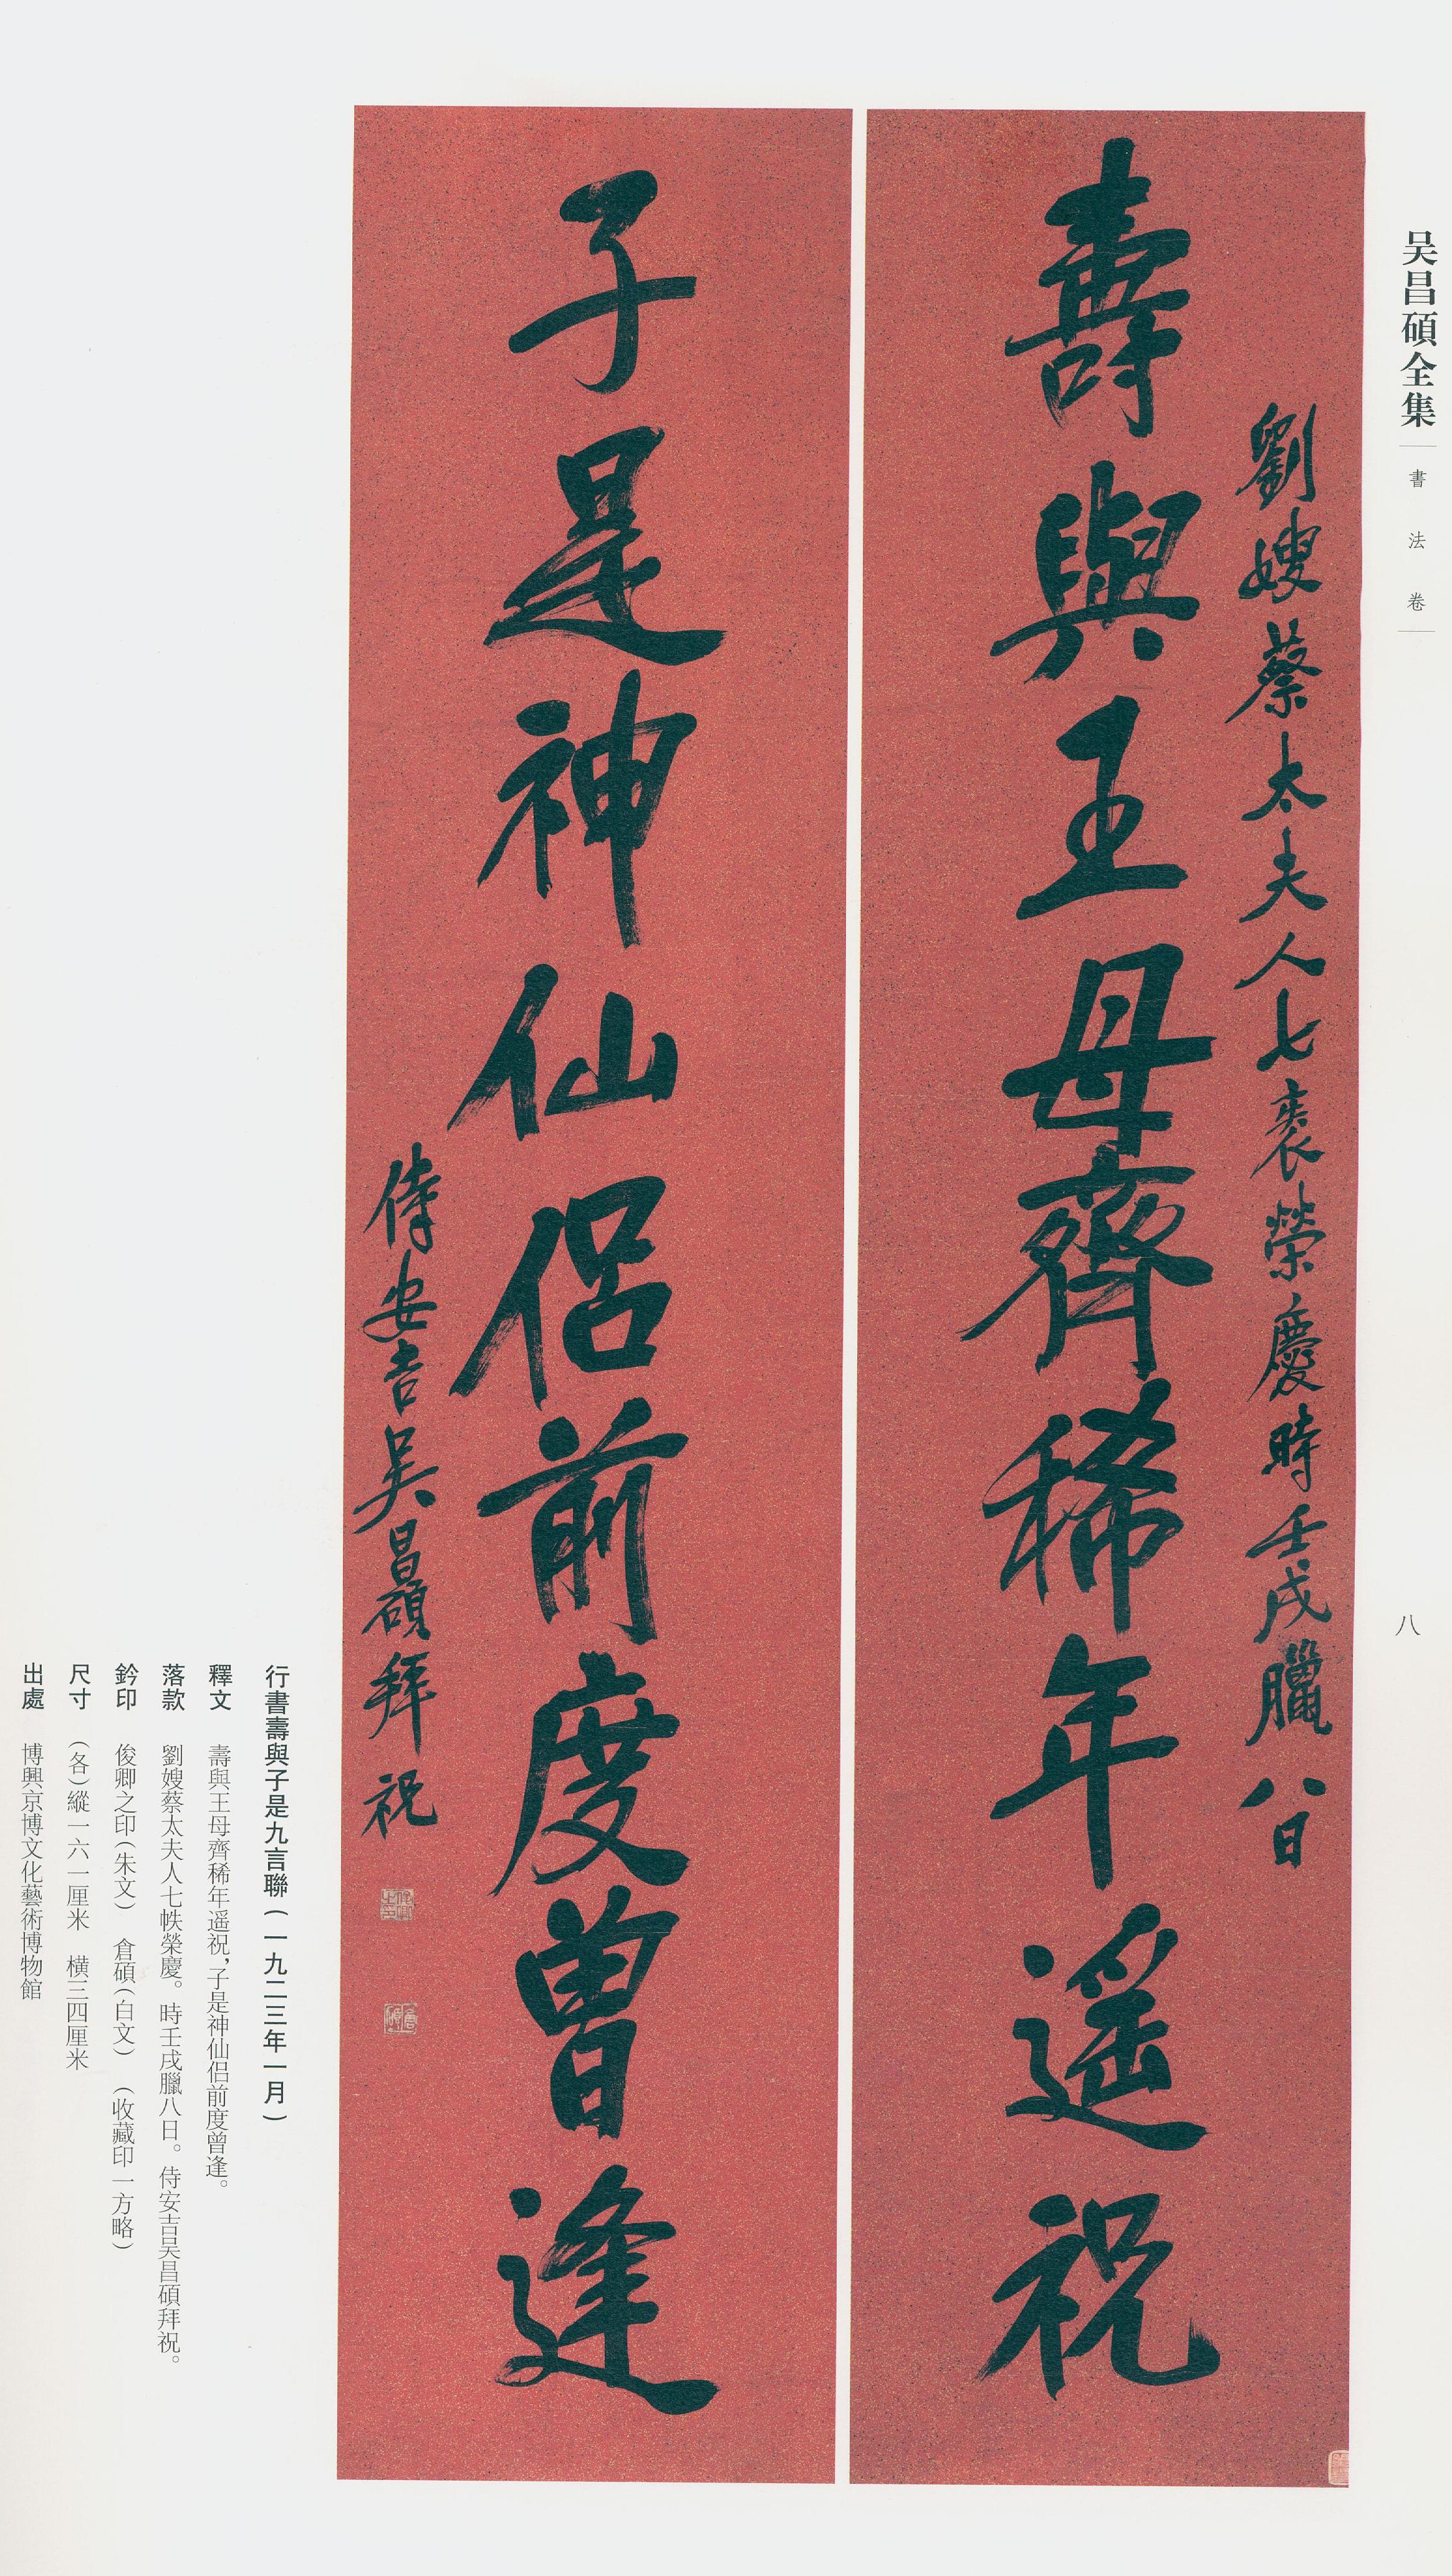 吴昌碩全集
書法卷
八
劉嫂蔡太夫人七袠榮慶時壬戌臘八日
壽與王母齊稀年遥祝
子是神仙侣前度曾逢
侍安吉吴昌碩拜祝
行書壽與子是九言聯(一九二三年一月)
釋文 壽與王母齊稀年遥祝,子是神仙侣前度曾逢。
落款 劉嫂蔡太夫人七帙榮慶。時壬戌臘八日。侍安吉吴昌碩拜祝。
鈐印 俊卿之印(朱文) 倉碩(白文) (收藏印一方略)
尺寸 (各)縱一六一厘米 横三四厘米
出處 博興京博文化藝術博物館
俊卿之印
倉碩